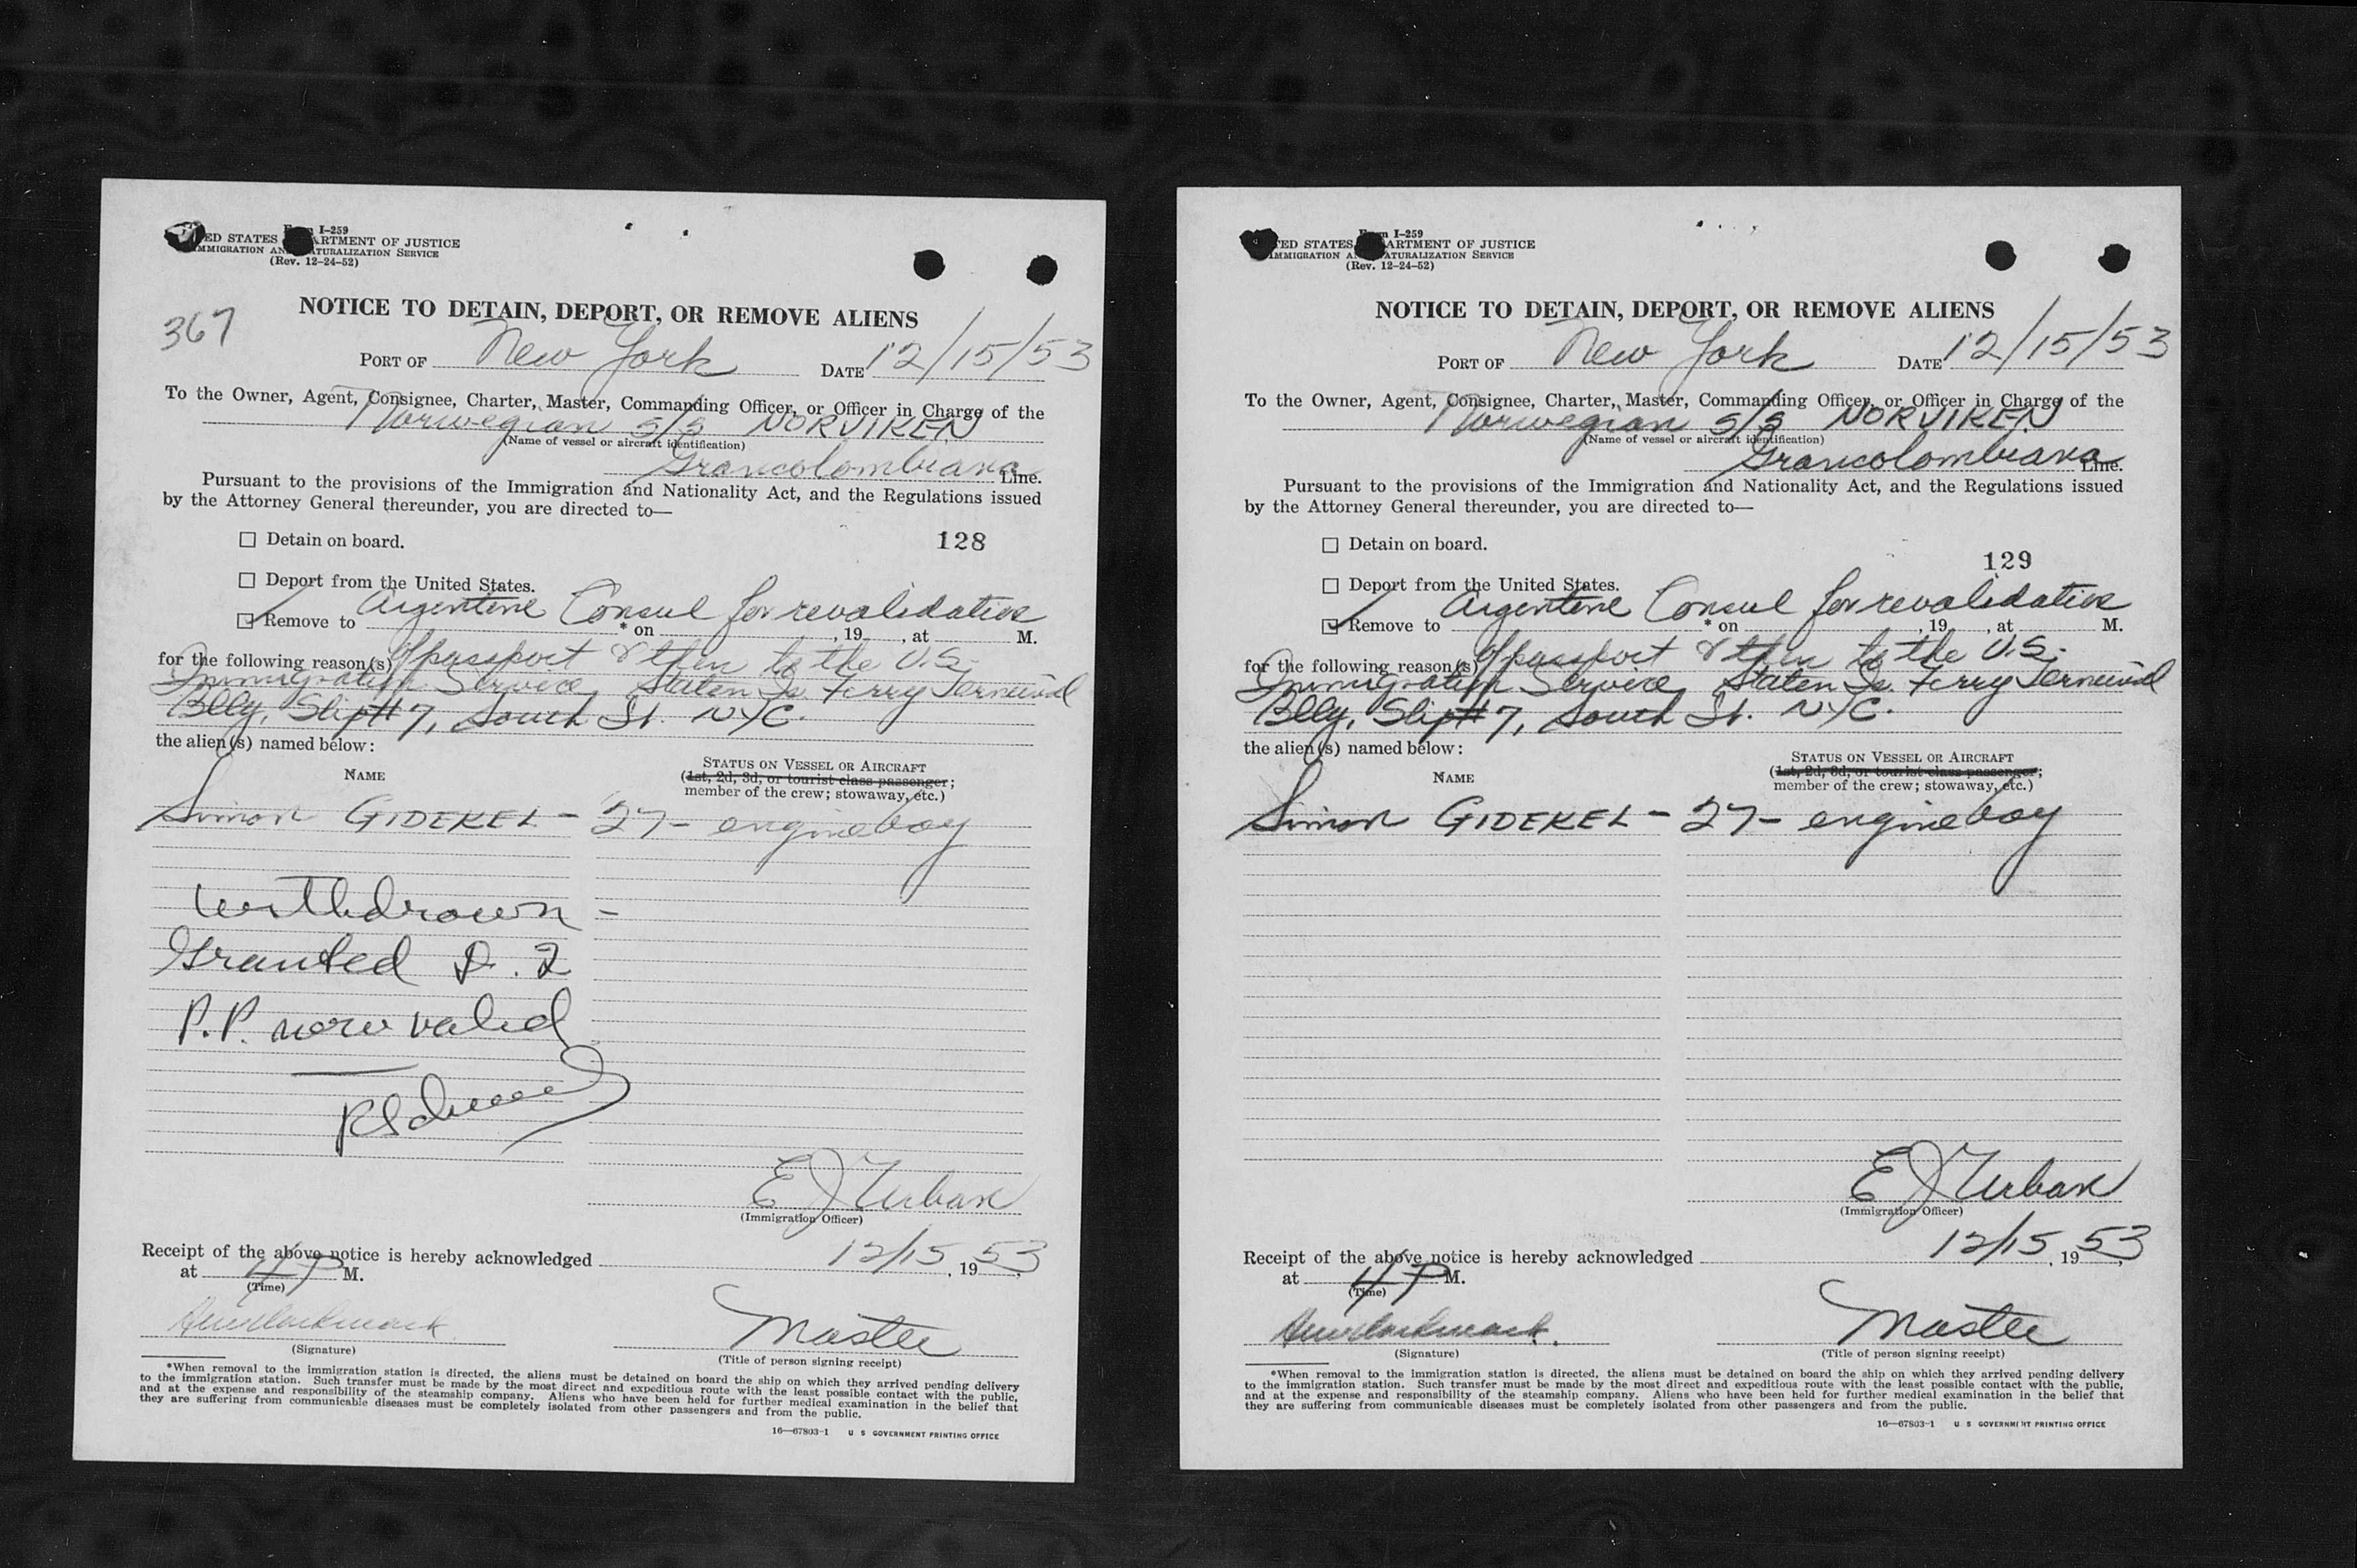 Form I-259
UNITED STATES DEPARTMENT OF JUSTICE
IMMIGRATION AND NATURALIZATION SERVICE
(Rev. 12-24-52)
367
NOTICE TO DETAIN, DEPORT, OR REMOVE ALIENS
PORT OF New York DATE 12/15/53
To the Owner, Agent, Consignee, Charter, Master, Commanding Officer, or Officer in Charge of the
Norwegian S/S NORVIKEN
(Name of vessel or aircraft identification)
Grancolombiana Line.
Pursuant to the provisions of the Immigration and Nationality Act, and the Regulations issued
by the Attorney General thereunder, you are directed to—
☐ Detain on board.
128
☐ Deport from the United States.
☑ Remove to Argentine Consul for revalidation * on , 19 , at M.
for the following reason(s) of passport & then to the U.S.
Immigration Service, Staten Is. Ferry Terminal
Bldg, Slip # 7, South St. NYC.
the alien(s) named below:
NAME
STATUS ON VESSEL OR AIRCRAFT
(1st, 2d, 3d, or tourist class passenger;
member of the crew; stowaway, etc.)
Simon GIDEKEL - 27 - engine boy
Withdrawn -
Granted D. 2
P.P. now valid
E J Urban
(Immigration Officer)
Receipt of the above notice is hereby acknowledged 12/15, 1953,
at 4 P M.
(Time)
Master
(Signature)
(Title of person signing receipt)
*When removal to the immigration station is directed, the aliens must be detained on board the ship on which they arrived pending delivery
to the immigration station. Such transfer must be made by the most direct and expeditious route with the least possible contact with the public,
and at the expense and responsibility of the steamship company. Aliens who have been held for further medical examination in the belief that
they are suffering from communicable diseases must be completely isolated from other passengers and from the public.
16—67803-1 U S GOVERNMENT PRINTING OFFICE
Form I-259
UNITED STATES DEPARTMENT OF JUSTICE
IMMIGRATION AND NATURALIZATION SERVICE
(Rev. 12-24-52)
NOTICE TO DETAIN, DEPORT, OR REMOVE ALIENS
PORT OF New York DATE 12/15/53
To the Owner, Agent, Consignee, Charter, Master, Commanding Officer, or Officer in Charge of the
Norwegian S/S NORVIKEN
(Name of vessel or aircraft identification)
Grancolombiana Line.
Pursuant to the provisions of the Immigration and Nationality Act, and the Regulations issued
by the Attorney General thereunder, you are directed to—
☐ Detain on board.
129
☐ Deport from the United States.
☑ Remove to Argentine Consul for revalidation * on , 19 , at M.
for the following reason(s) of passport & then to the U.S.
Immigration Service, Staten Is. Ferry Terminal
Bldg, Slip # 7, South St. NYC.
the alien(s) named below:
NAME
STATUS ON VESSEL OR AIRCRAFT
(1st, 2d, 3d, or tourist class passenger;
member of the crew; stowaway, etc.)
Simon GIDEKEL - 27 - engine boy
E J Urban
(Immigration Officer)
Receipt of the above notice is hereby acknowledged 12/15, 1953,
at 4 P M.
(Time)
Master
(Signature)
(Title of person signing receipt)
*When removal to the immigration station is directed, the aliens must be detained on board the ship on which they arrived pending delivery
to the immigration station. Such transfer must be made by the most direct and expeditious route with the least possible contact with the public,
and at the expense and responsibility of the steamship company. Aliens who have been held for further medical examination in the belief that
they are suffering from communicable diseases must be completely isolated from other passengers and from the public.
16—67803-1 U S GOVERNMENT PRINTING OFFICE